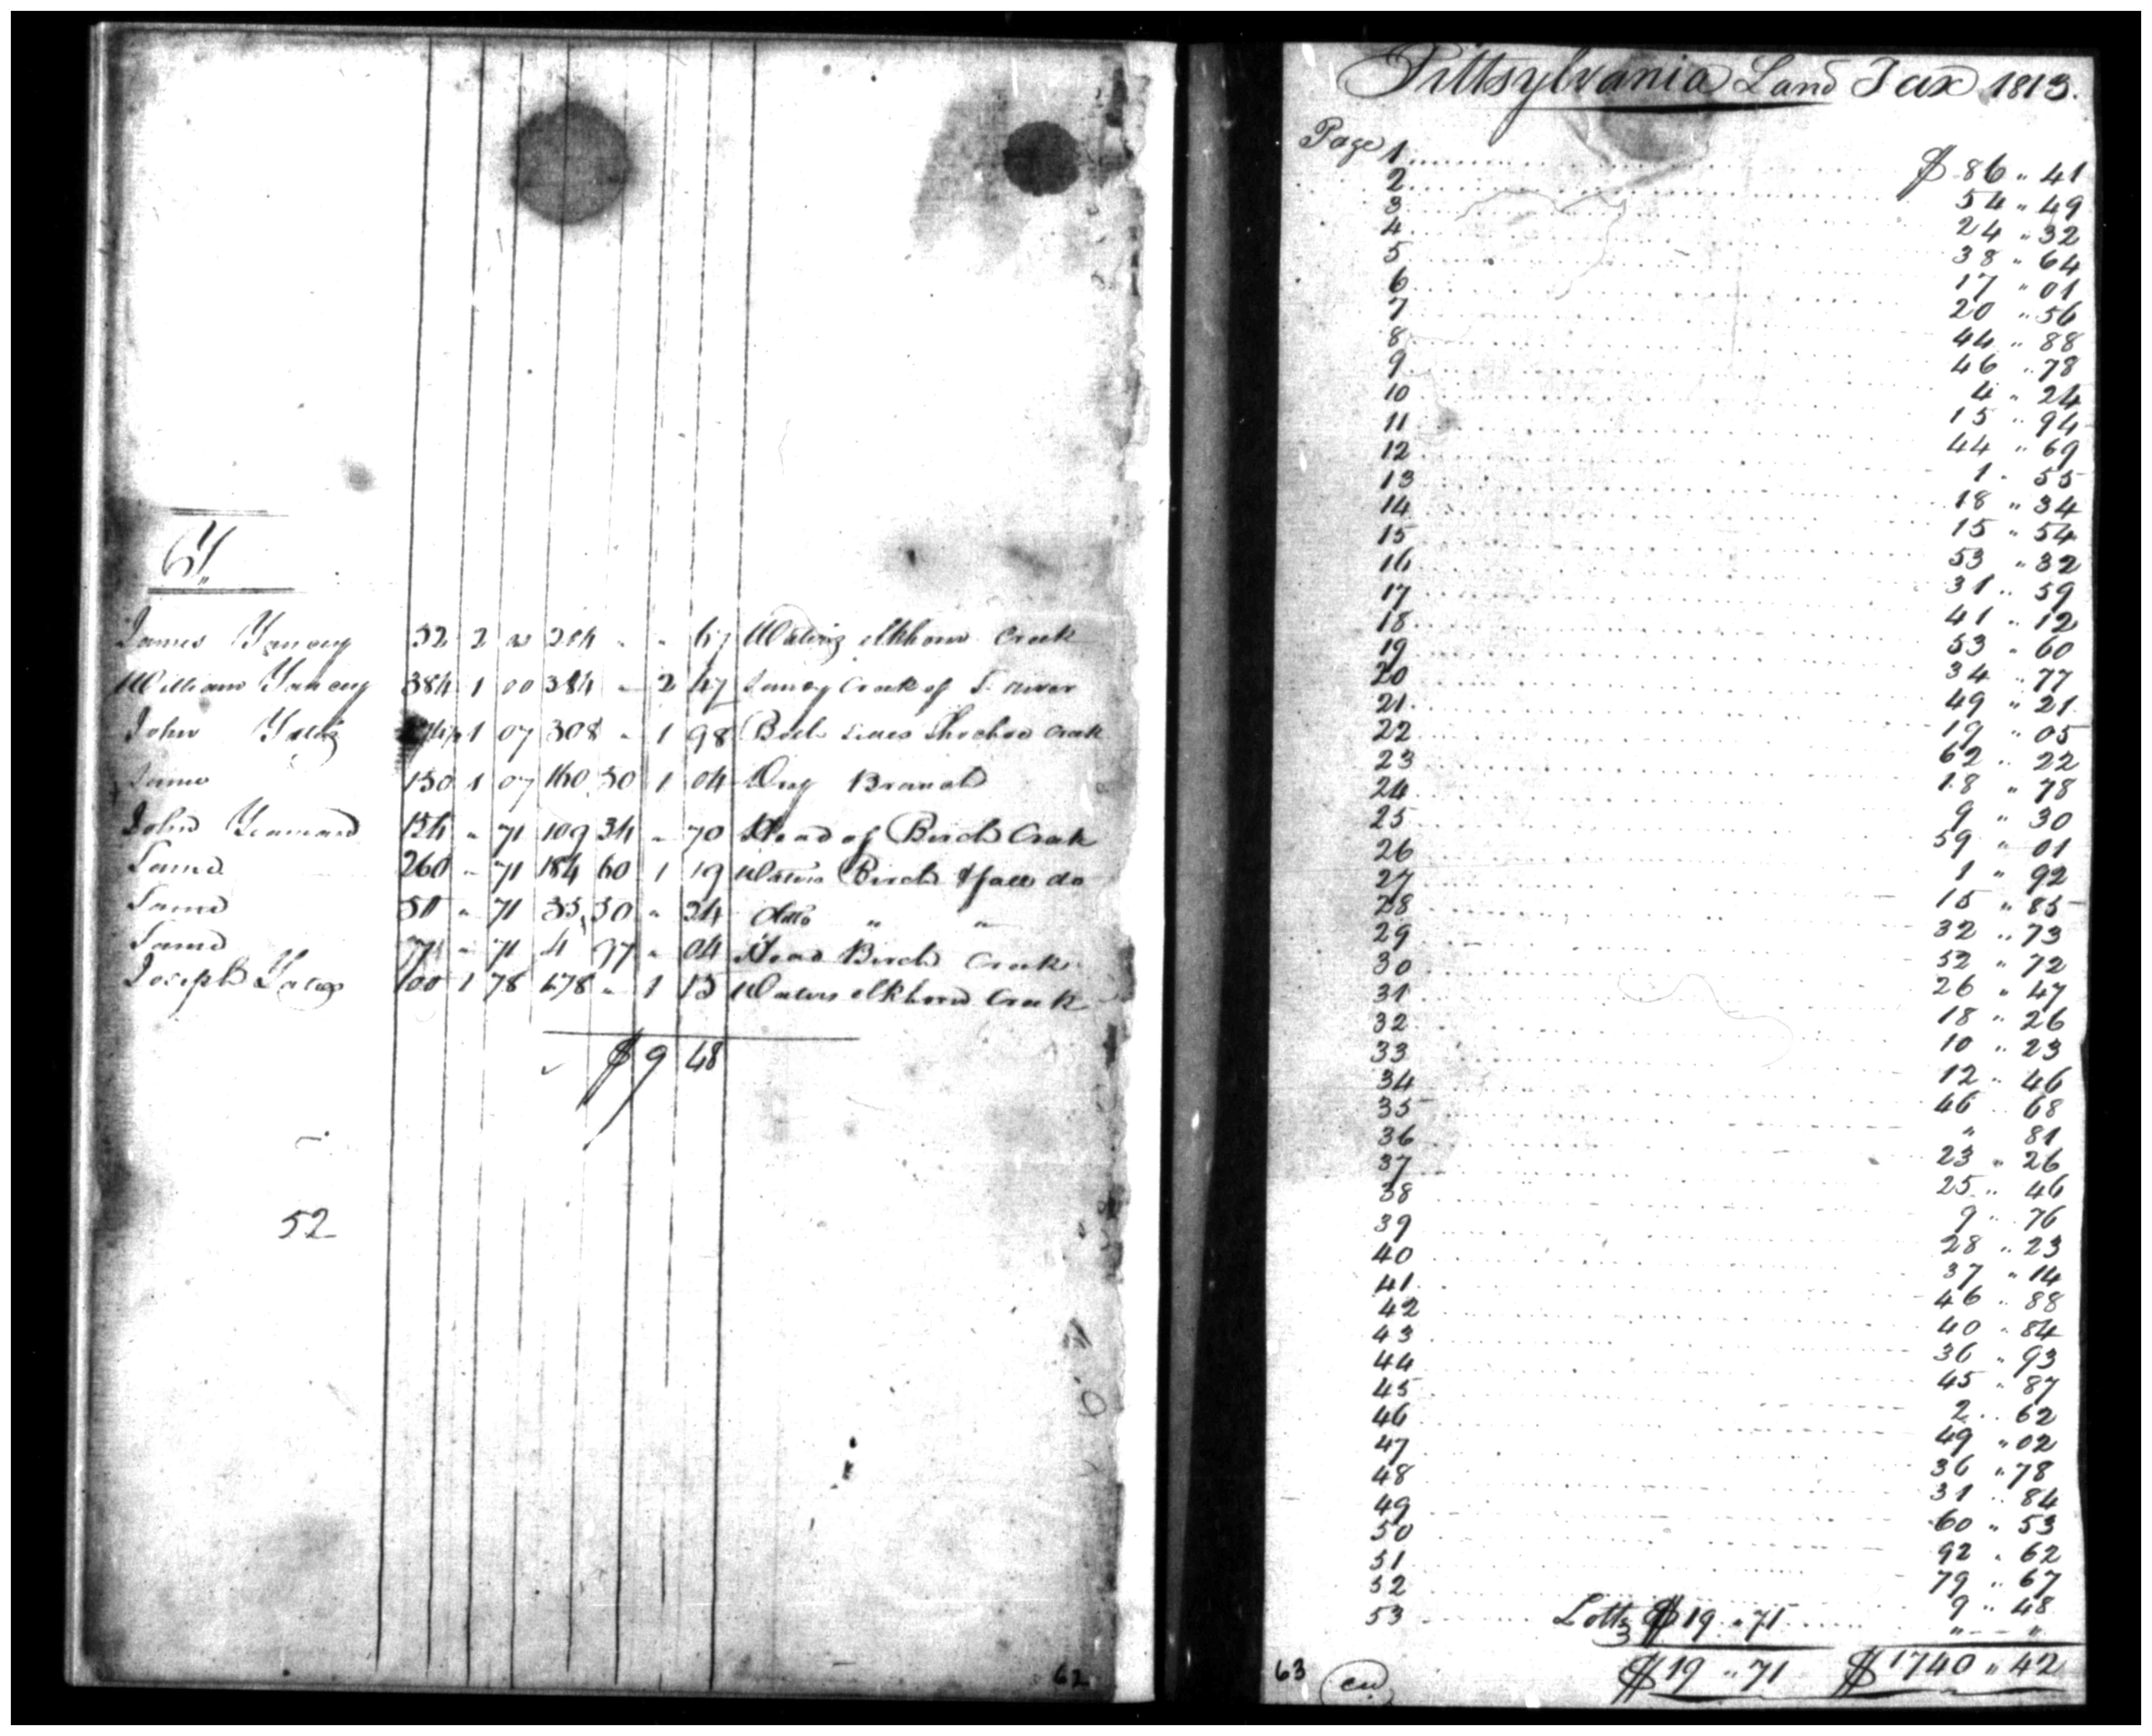 James Yancey 52 2 204 " " 67 Waters elkhorn Creek
William Yancey 384 1 00 384 " 2 47 Creek of S. river
John Yates 1 07 308 " 1 98 Both sides Shockoe Creek
Same 150 1 07 160 50 1 04 Dry Branch
John Yeamard 154 " 71 109 34 " 70 Head of Birch Creek
Same 260 " 71 184 60 1 19 Waters Birch & fall do
Same 50 " 71 35 50 " 24 ditto " "
Same 7 " 71 4 97 " 04 Head Birch Creek
Joseph Yates 100 1 78 178 " 1 15 Waters elkhorn Creek
$ 9 48
52
62
Pittsylvania Land Tax 1813.
Page 1 $ 86 " 41
2 54 " 49
3 24 " 32
4 38 " 64
5 17 " 01
6 20 " 56
7 44 " 88
8 46 " 78
9 4 " 24
10 15 " 94
11 44 " 69
12 1 " 55
13 18 " 34
14 15 " 54
15 53 " 32
16 31 " 59
17 41 " 12
18 53 " 60
19 34 " 77
20 49 " 21
21 19 " 05
22 62 " 22
23 18 " 78
24 9 " 30
25 59 " 01
26 1 " 92
27 15 " 85
28 32 " 73
29 52 " 72
30 26 " 47
31 18 " 26
32 10 " 23
33 12 " 46
34 46 " 68
35 " 81
36 23 " 26
37 25 " 46
38 9 " 76
39 28 " 23
40 37 " 14
41 46 " 88
42 40 " 84
43 36 " 93
44 45 " 87
45 2 " 62
46 49 " 02
47 36 " 78
48 31 " 84
49 60 " 53
50 92 " 62
51 79 " 67
52 9 " 48
53 Lotts $ 19 " 71 " "
$ 19 " 71 $ 1740 " 42
63